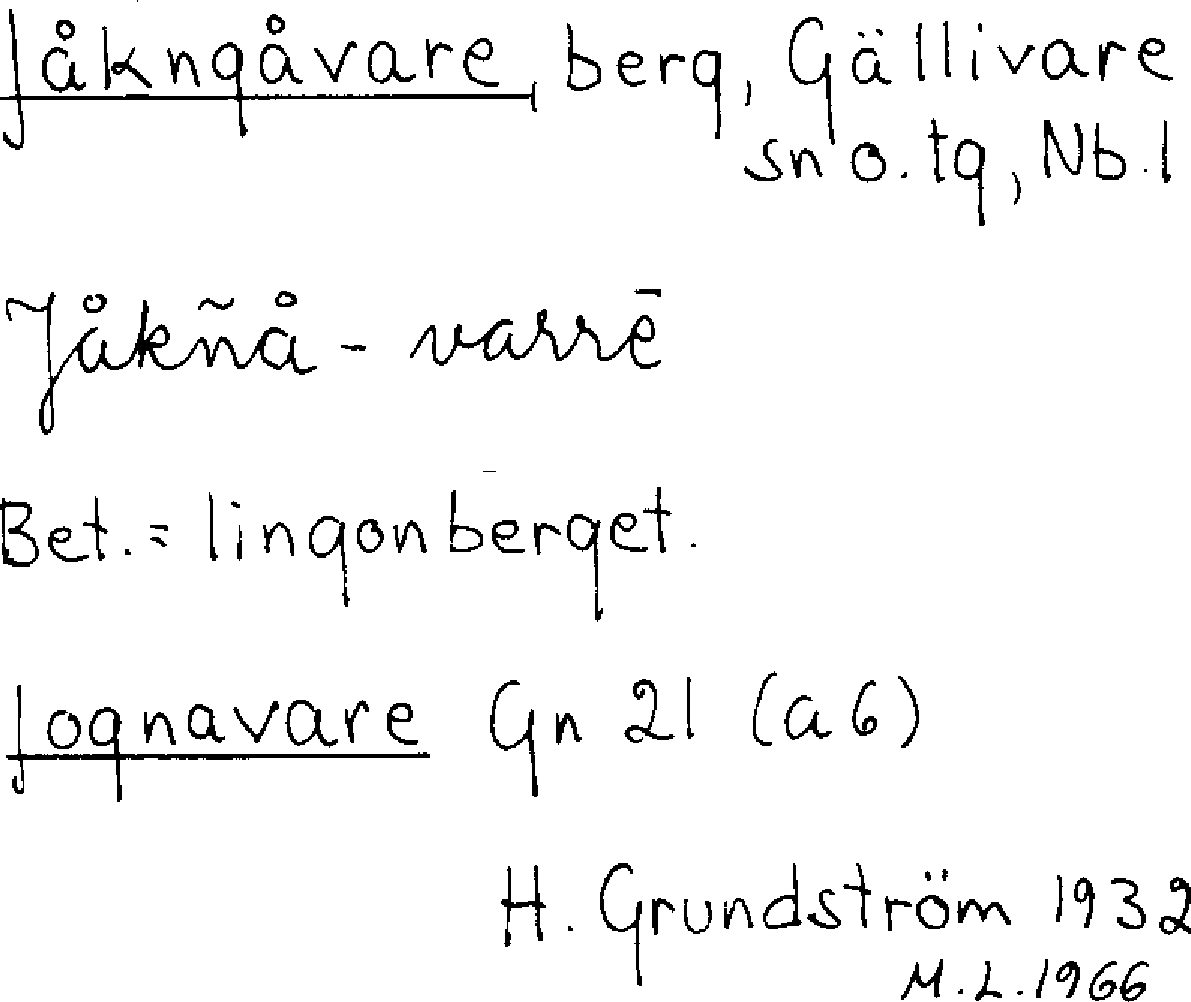 Jåkngåvare, berg, Gällivare
sn o. tg, Nb.l
Jåkñå - varrē
Bet. = lingonberget.
Jognavare Gn 21 (a6)
H. Grundström 1932
M.L. 1966